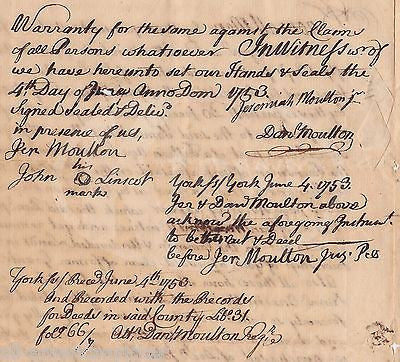 Warranty for the same against the Claims
of all Persons whatsoever In Witness w.of
we have hereunto set our Hands & Seals the
4th Day of June Anno Dom 1753
Jeremiah Moulton Jr
Signed sealed & Delivd
in presence of us,
Danl Moulton
Jer Moulton
his
John O Linscot
mark
York ss/ York June 4. 1753.
Jer & Danl Moulton above
acknow'd the aforegoing Instrumt
to be their act & Deed
before Jer Moulton Jus; Pes
York ss/ Recd June 4th 1753
And Recorded with the Records
for Deeds in said County Libo 31.
folo 66/
Attr Danl Moulton Regr